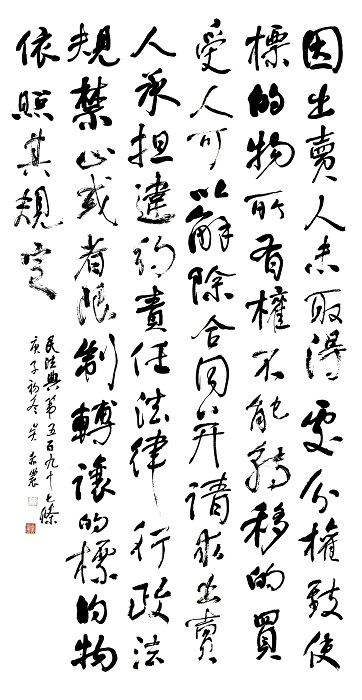 因出賣人未取得處分權致使
標的物所有權不能轉移的買
受人可以解除合同并請求出賣
人承担違約責任法律行政法
規禁止或者限制轉讓的標的物
依照其規定
民法典第五百九十七條
庚子初冬吳